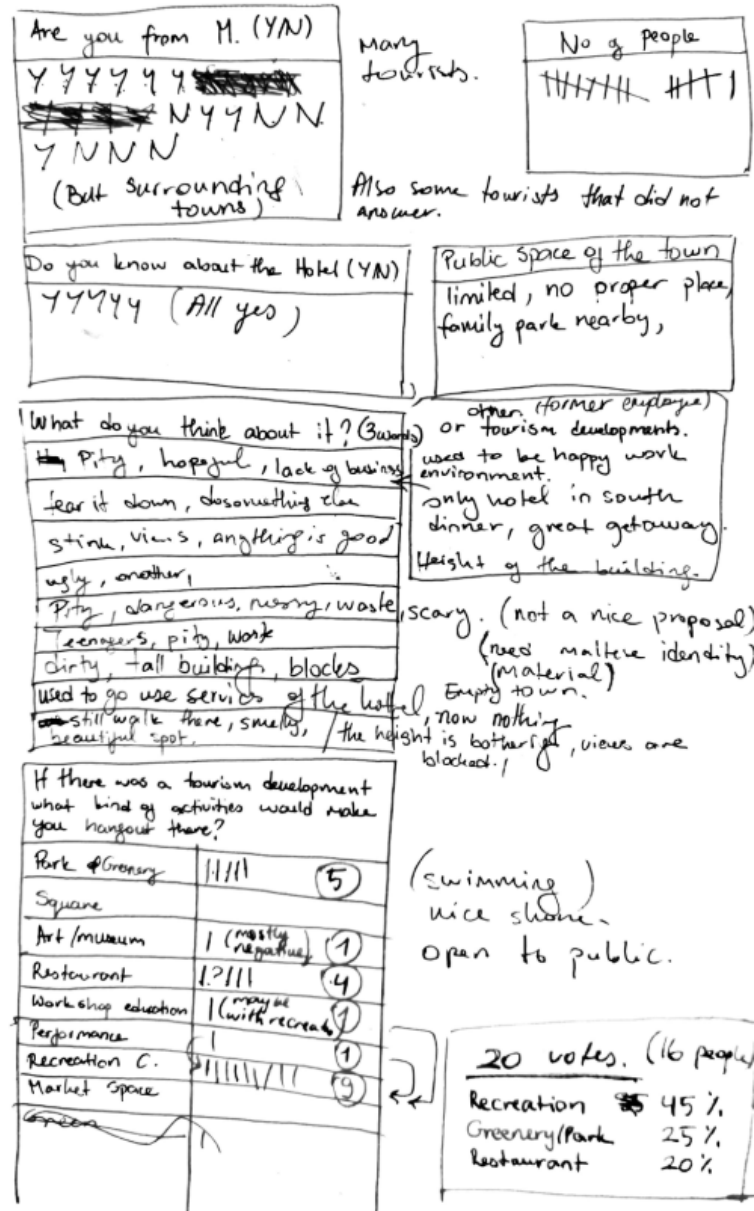 Are you from M. (Y/N)
Y Y Y Y Y Y
N Y Y N N
Y N N N
(But surrounding
towns)
Many
tourists.
No of people
Also some tourists that did not
answer.
Do you know about the Hotel (Y/N)
Y Y Y Y Y (All yes)
Public space of the town
limited, no proper place,
family park nearby,
What do you think about it? (3 words)
Pity, hopeful, lack of business
tear it down, do something else
stink, views, anything is good
ugly, another,
Pity, dangerous, messy, waste, scary. (not a nice proposal)
Teenagers, pity, waste
dirty, tall building, blocks
used to go use services of the hotel, now nothing
still walk there, smelly,
beautiful spot.
/ the height is bothering, views are
blocked.,
other. (former employee)
or tourism developments.
used to be happy work
environment.
only hotel in south
dinner, great getaway.
Height of the building.
(need maltese identity)
(material)
Empty town.
If there was a tourism development
what kind of activities would make
you hangout there?
Park & Greenery 5
Square
Art/museum (mostly negative) 1
Restaurant ? 4
Workshop education (maybe with recreation) 1
Performance 1
Recreation C. 9
Market Space
(swimming)
nice shore.
open to public.
20 votes. (16 people)
Recreation 45%
Greenery/Park 25%
Restaurant 20%